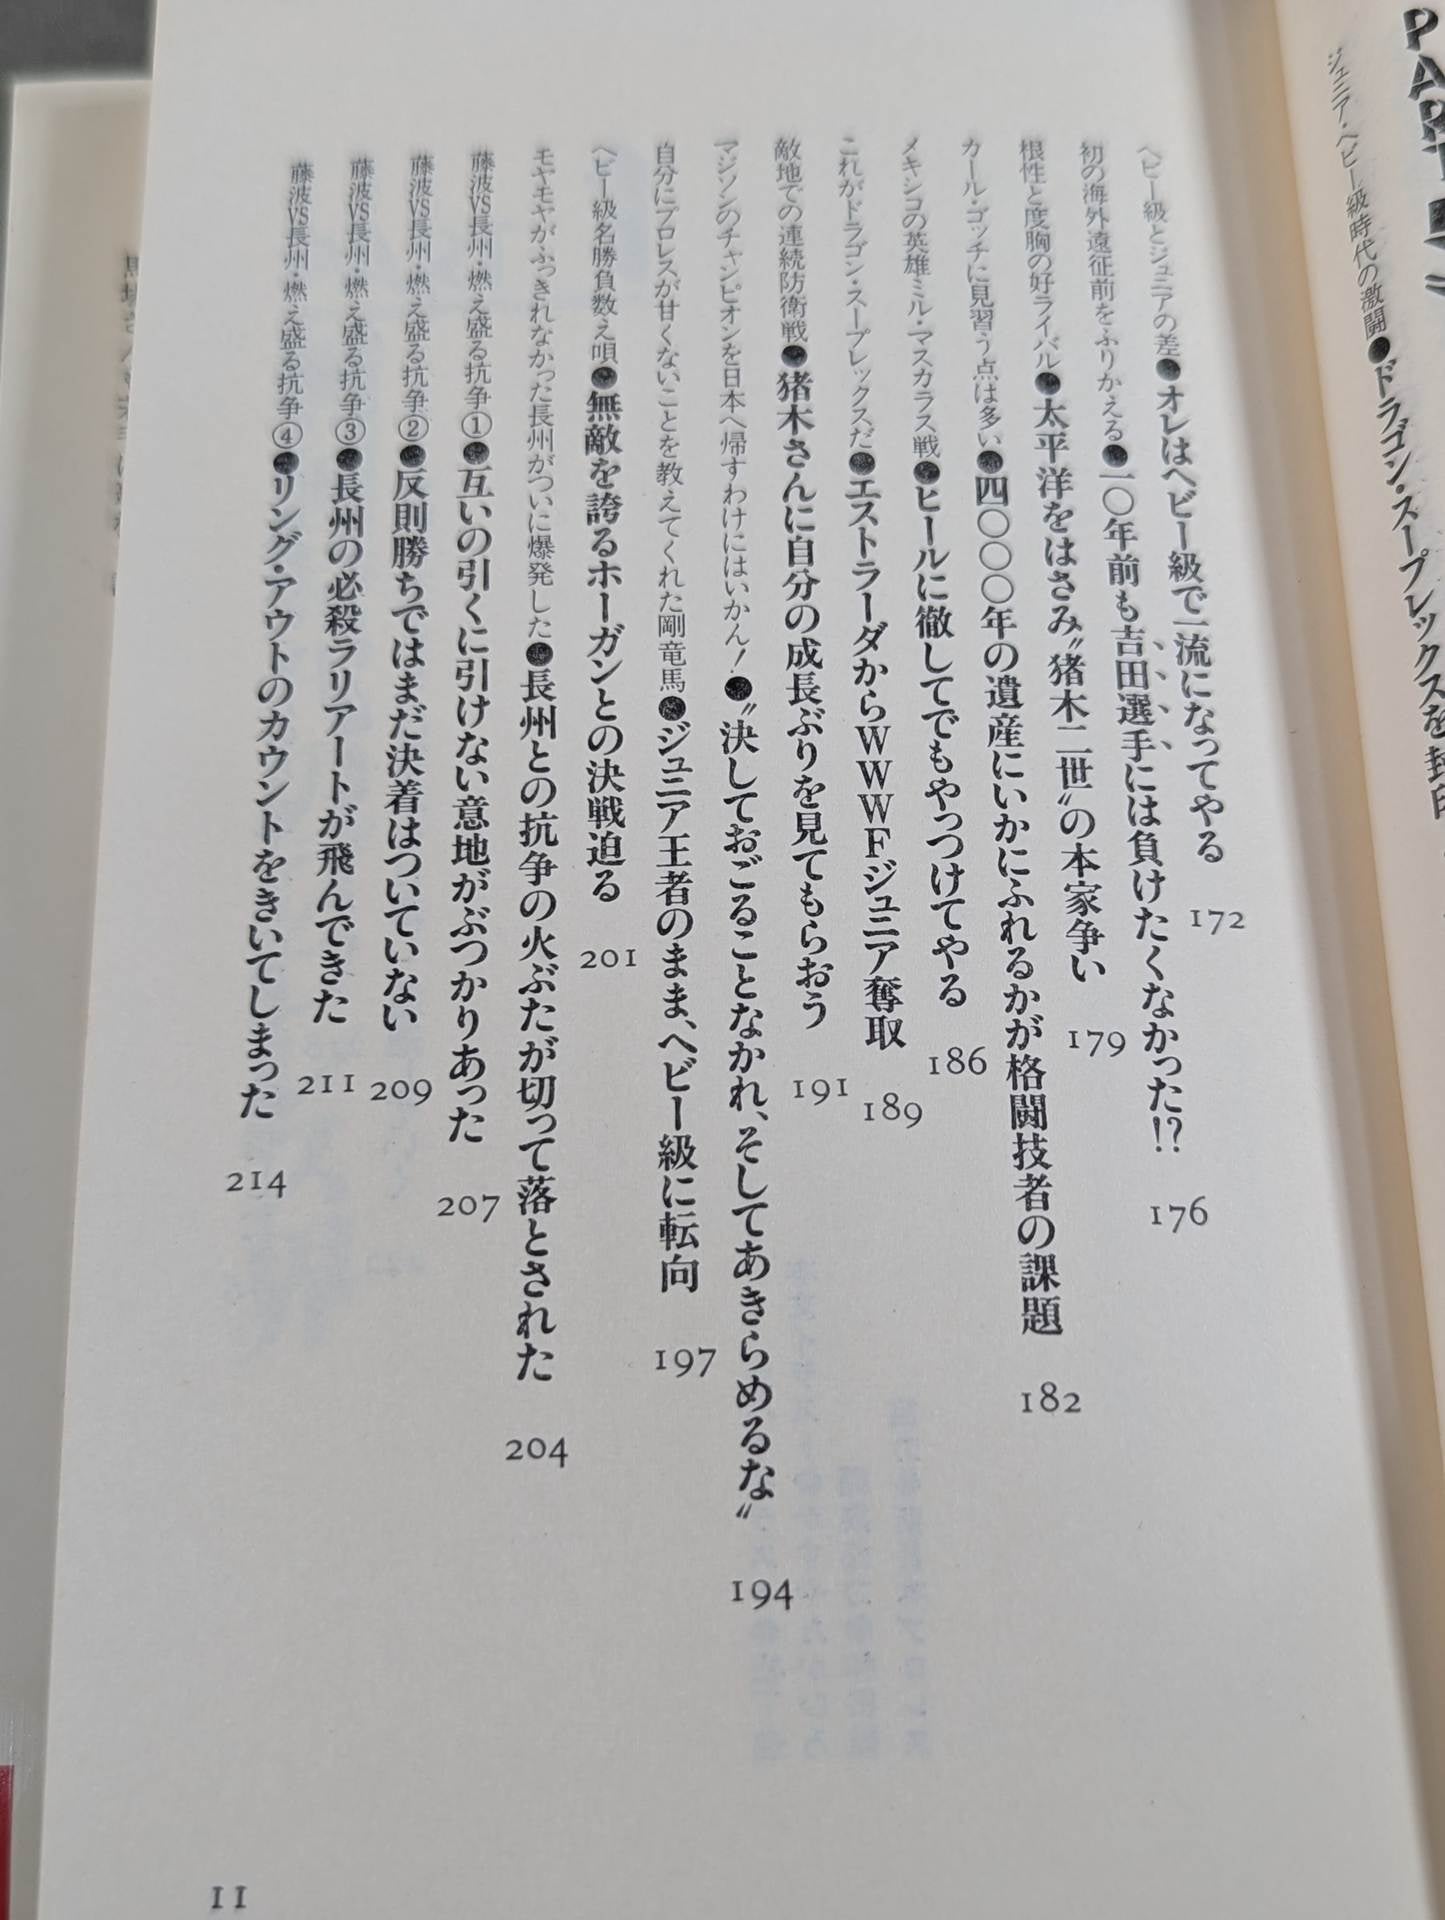 PART
ジュニア・ヘビー級時代の激闘●ドラゴン・スープレックスを封印
ヘビー級とジュニアの差●オレはヘビー級で一流になってやる 172
初の海外遠征前をふりかえる●一〇年前も吉田選手には負けたくなかった!? 176
根性と度胸の好ライバル●太平洋をはさみ〝猪木二世〟の本家争い 179
カール・ゴッチに見習う点は多い●四〇〇〇年の遺産にいかにふれるかが格闘技者の課題 182
メキシコの英雄ミル・マスカラス戦●ヒールに徹してでもやっつけてやる 186
これがドラゴン・スープレックスだ●エストラーダからWWWFジュニア奪取 189
敵地での連続防衛戦●猪木さんに自分の成長ぶりを見てもらおう 191
マジソンのチャンピオンを日本へ帰すわけにはいかん!●〝決しておごることなかれ、そしてあきらめるな〟 194
自分にプロレスが甘くないことを教えてくれた剛竜馬●ジュニア王者のまま、ヘビー級に転向 197
ヘビー級名勝負数え唄●無敵を誇るホーガンとの決戦迫る 201
モヤモヤがふっきれなかった長州がついに爆発した●長州との抗争の火ぶたが切って落とされた 204
藤波VS長州・燃え盛る抗争①●互いの引くに引けない意地がぶつかりあった 207
藤波VS長州・燃え盛る抗争②●反則勝ちではまだ決着はついていない 209
藤波VS長州・燃え盛る抗争③●長州の必殺ラリアートが飛んできた 211
藤波VS長州・燃え盛る抗争④●リング・アウトのカウントをきいてしまった 214
11